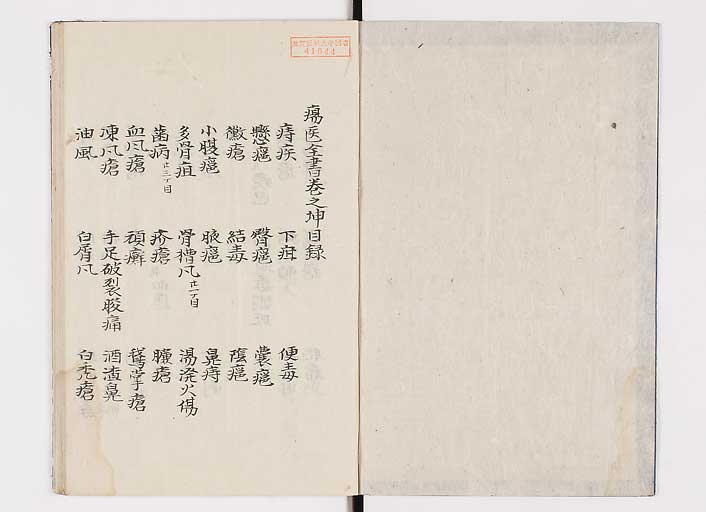 瘍医全書巻之坤目録
痔疾 下疳 便毒
懸癰 臀癰 嚢癰
黴瘡 結毒 陰瘡
小腹癰 腋癰 鼻痔
多骨疽 骨槽风 正一丁目 湯溌火傷
歯病 正三丁目 疥瘡 臁瘡
血风瘡 頑癬 鵞掌瘡
凍风瘡 手足破裂 酒渣鼻
油風 白屑风 白禿瘡
41044